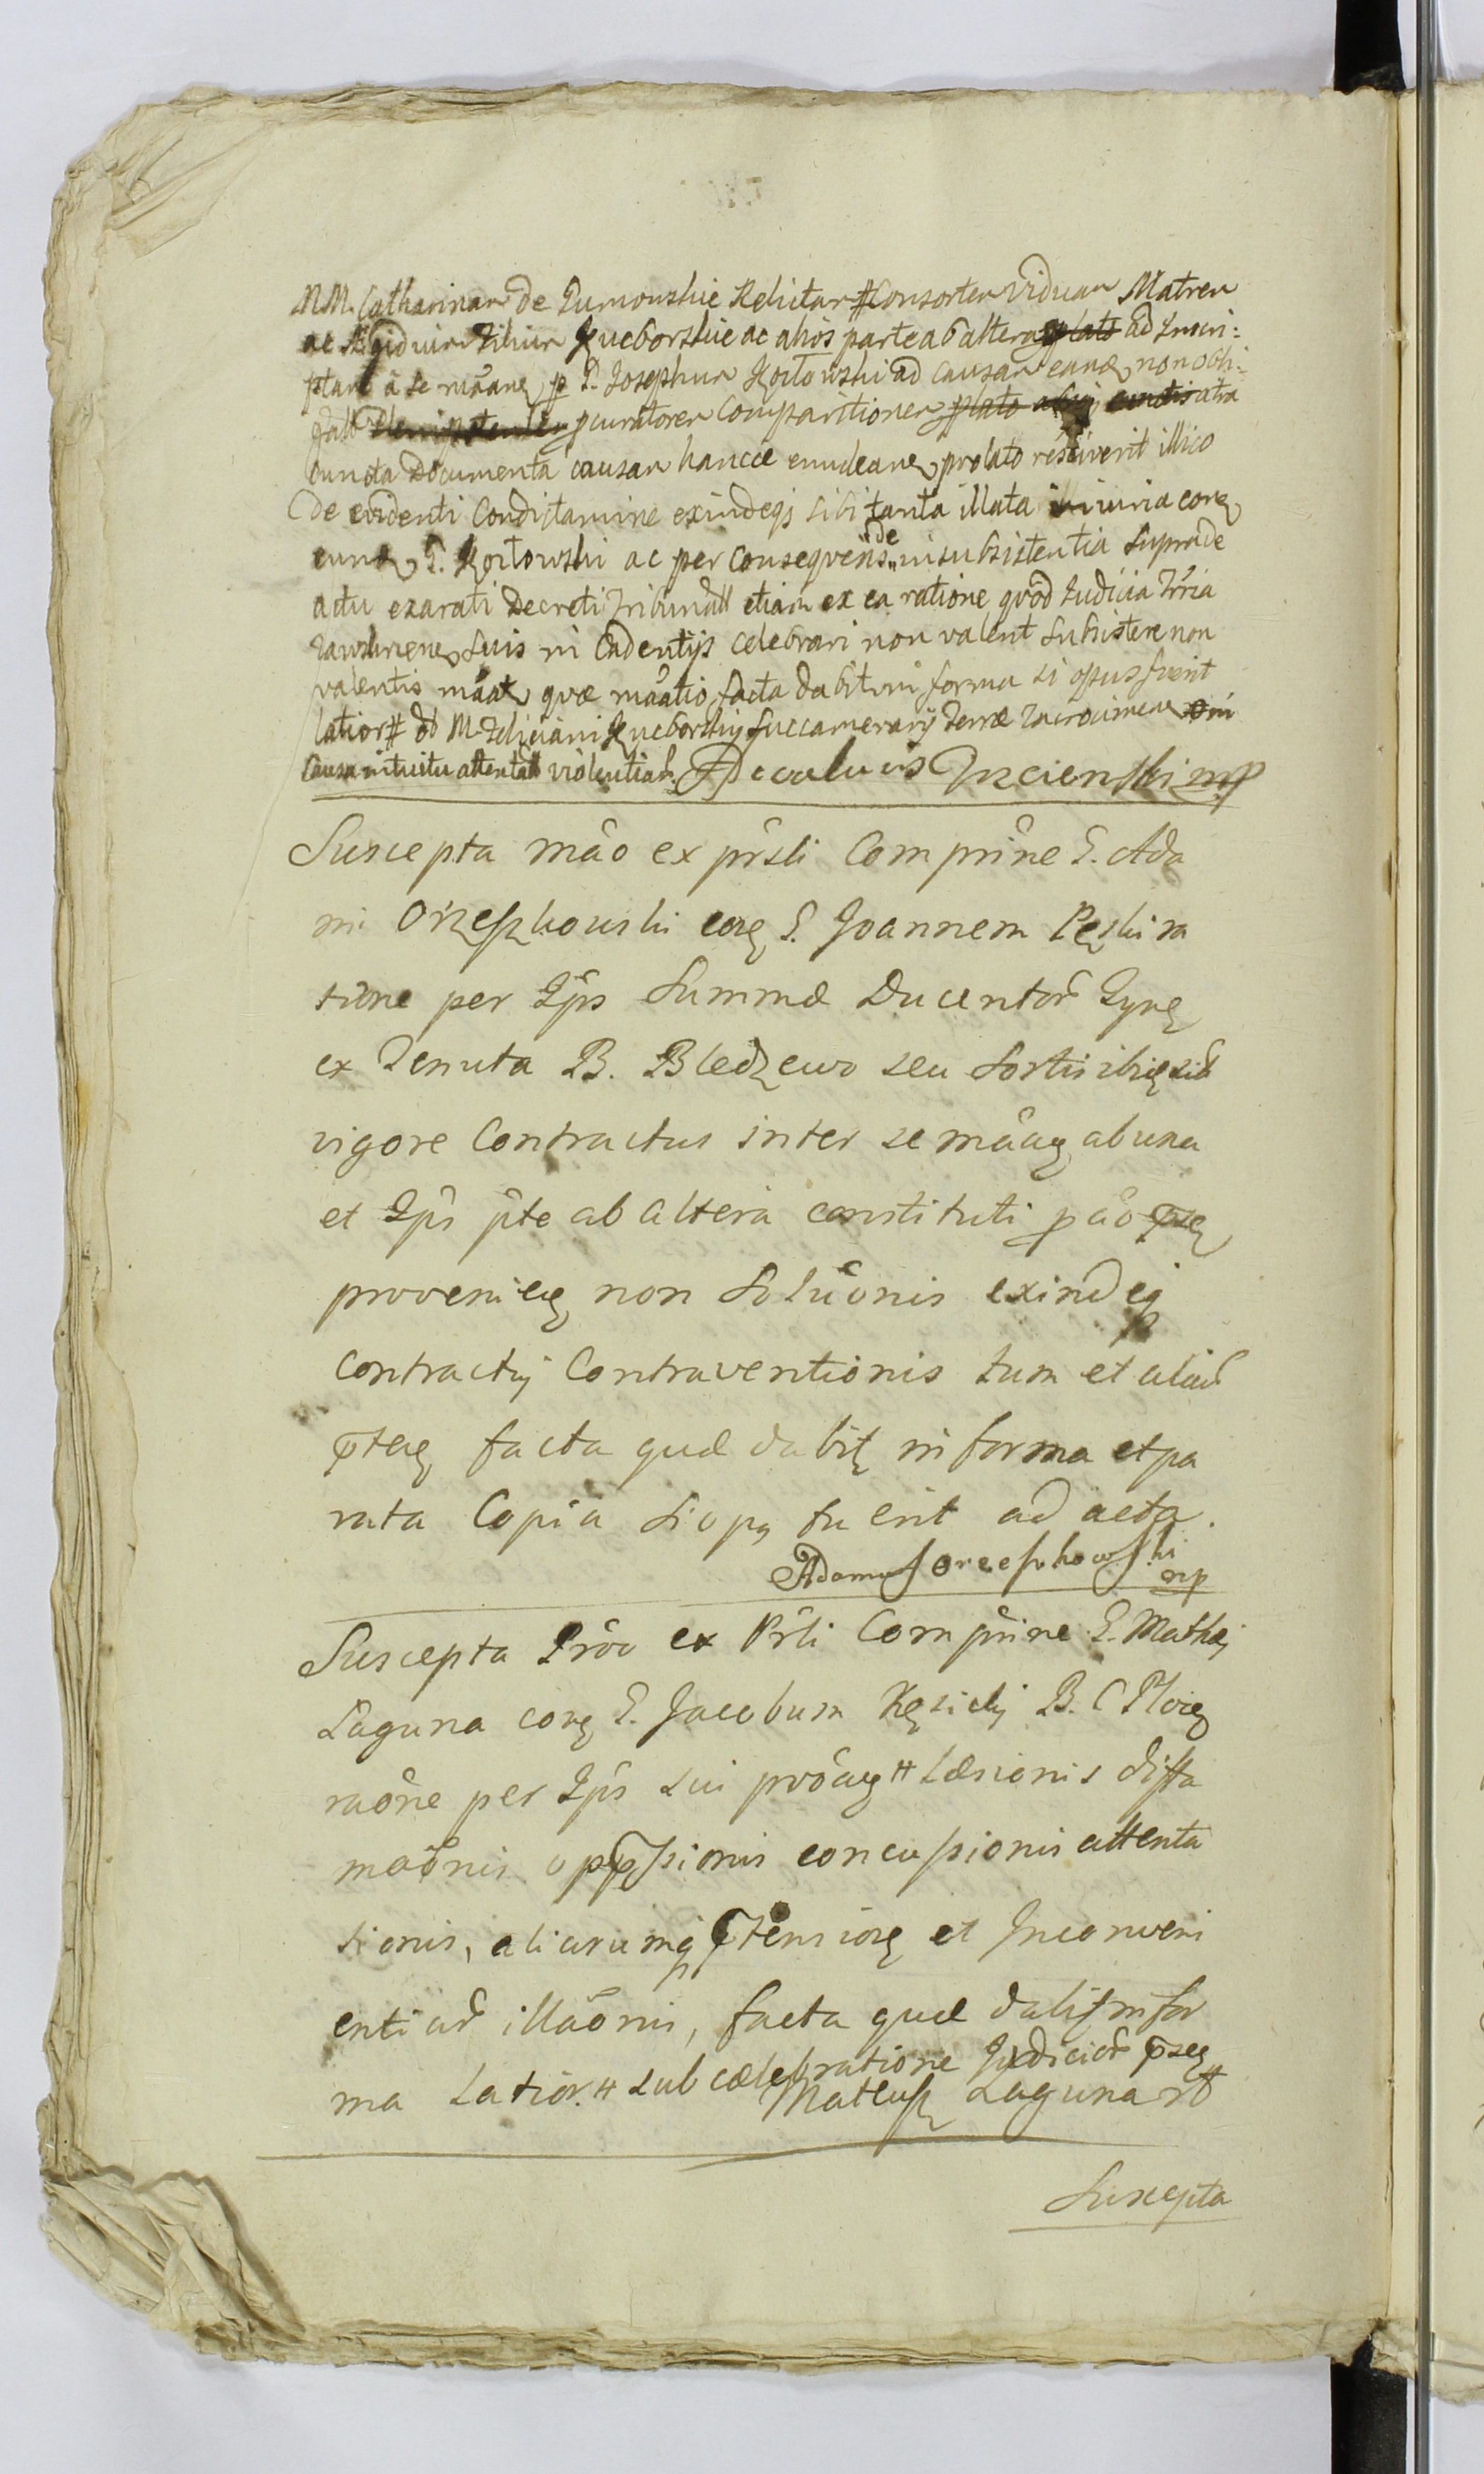 MM. Catharinam de Dumowskie Relictam # Consortem Viduam Matrem
ac Ægidium Filium Kuczborskie ac alios parte ab altera ad Inscri:
ptam à se mãane p G. Josephum Kozłowski ad causam eand non obli:
procuratorem Comparitionem
cuncta Documenta causam hancce enudeane prolato resciverit illico
De evidenti Condictamine exindeq3 sibi tanta illata iniuria core
eund G. Kozłowski ac per consequens de insubsistentia supra de
actu exarati Decreti Tribunall etiam ex ea ratione quod Judicia Trria
Zawskrzene suis in Cadentijs celebrari non valent subsistere non
valentis mãat quæ mãatio facta dabit in forma si opus fuerit
latior # ob M. Feliciani Kuczborskij Succamerarij Terræ Zacrocimen
causa intuitu attentat violentiar.
Suscepta mão ex prsli Comprine G. Ada
mi Orzeszkowski core G. Joannem Pęski ra
tione per Ips Summæ Ducentor Tynf
ex Tenuta B. Bledzewo seu Sortis ibid sit
vigore Contractus inter se mãae ab una
et Ips pte ab altera constituti p ão pse
provenien non Solũonis exindeq
Contractuj Contraventionis tum et aliar
pten facta quæ dabit in forma et pa
rata Copia si op9 fuerit ad acta.
Adamus Orzeszkowski mp
Suscepta Prõo ex Prsli Comprine G. Mathæi
Laguna core G. Jacobum Kęsicki B. C Ploc
raõne per Ips sui prõae # Læsionis diffa
maõnis oppssionis concussionis attenta
tionis, aliarumq ptensione et Inconveni
entiar illaõnis, facta quæ dabit in for
ma Latior. # sub cælebratione Judicior pse
Mateusz Laguna
Suscepta